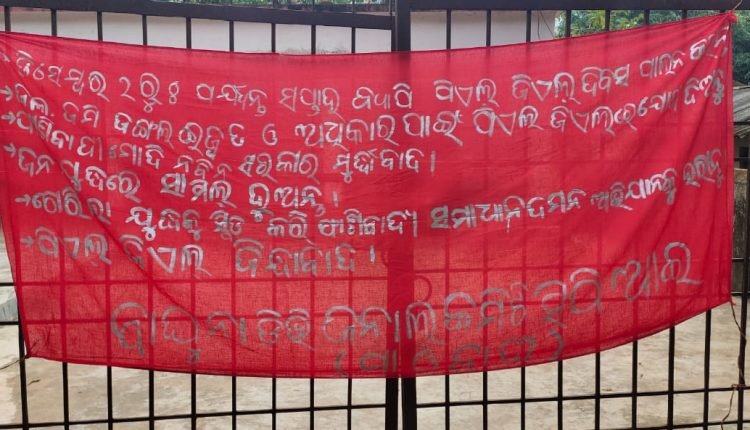 ଡିସେମ୍ବର ୨ରୁ ୫ ପର୍ଯ୍ୟନ୍ତ ସପ୍ତାହ ବ୍ୟାପି ପିଏଲ୍ ଜିଏଲ୍ ଦିବସ ପାଳନ କର
→ ଜଲ, ଜମି ଜଙ୍ଗଲ ଇଜ୍ଜତ ଓ ଅଧିକାର ପାଇଁ ପିଏଲ ଜିଏଲରେ ଯୋଗ ଦିଅନ୍ତୁ
→ ଫାସିବାଦୀ ମୋଦି ନବିନ ସରକାର ମୁର୍ଦ୍ଦାବାଦ।
→ ଜନ ଯୁଦ୍ଧରେ ସାମିଲ୍ ହୁଅନ୍ତୁ।
→ ଗେରିଲା ଯୁଦ୍ଧକୁ ତିବ୍ର କରି ଫାସିବାଦୀ ସମାଧାନ ଦମନ ଅଭିଯାନକୁ ହରାନ୍ତୁ
→ ପିଏଲ ଜିଏଲ ଜିନ୍ଦାବାଦ।
ନାଡିଭି ଜନାଲ କମିଟି ସିପିଆଇ
(ମାଓବାଦୀ)